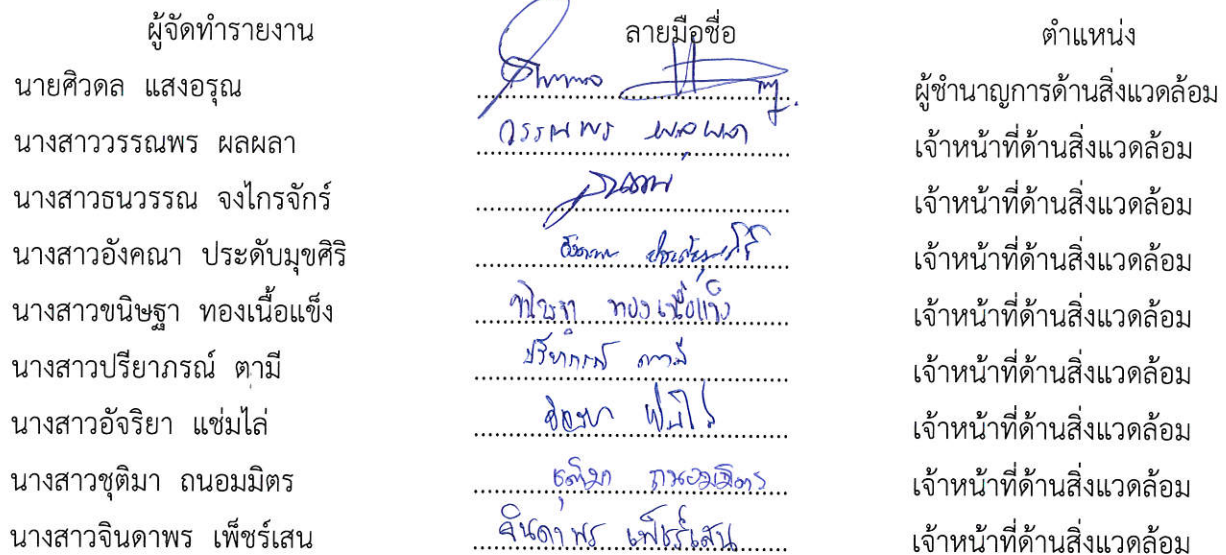 ผู้จัดทำรายงาน ลายมือชื่อ ตำแหน่ง
นายศิวดล แสงอรุณ ผู้ชำนาญการด้านสิ่งแวดล้อม
นางสาววรรณพร ผลผลา วรรณพร ผลผลา เจ้าหน้าที่ด้านสิ่งแวดล้อม
นางสาวธนวรรณ จงไกรจักร์ เจ้าหน้าที่ด้านสิ่งแวดล้อม
นางสาวอังคณา ประดับมุขศิริ เจ้าหน้าที่ด้านสิ่งแวดล้อม
นางสาวขนิษฐา ทองเนื้อแข็ง ขนิษฐา ทองเนื้อแข็ง เจ้าหน้าที่ด้านสิ่งแวดล้อม
นางสาวปรียาภรณ์ ตามี ปรียาภรณ์ ตามี เจ้าหน้าที่ด้านสิ่งแวดล้อม
นางสาวอัจริยา แช่มไล่ เจ้าหน้าที่ด้านสิ่งแวดล้อม
นางสาวชุติมา ถนอมมิตร ชุติมา ถนอมมิตร เจ้าหน้าที่ด้านสิ่งแวดล้อม
นางสาวจินดาพร เพ็ชร์เสน จินดาพร เพ็ชร์เสน เจ้าหน้าที่ด้านสิ่งแวดล้อม